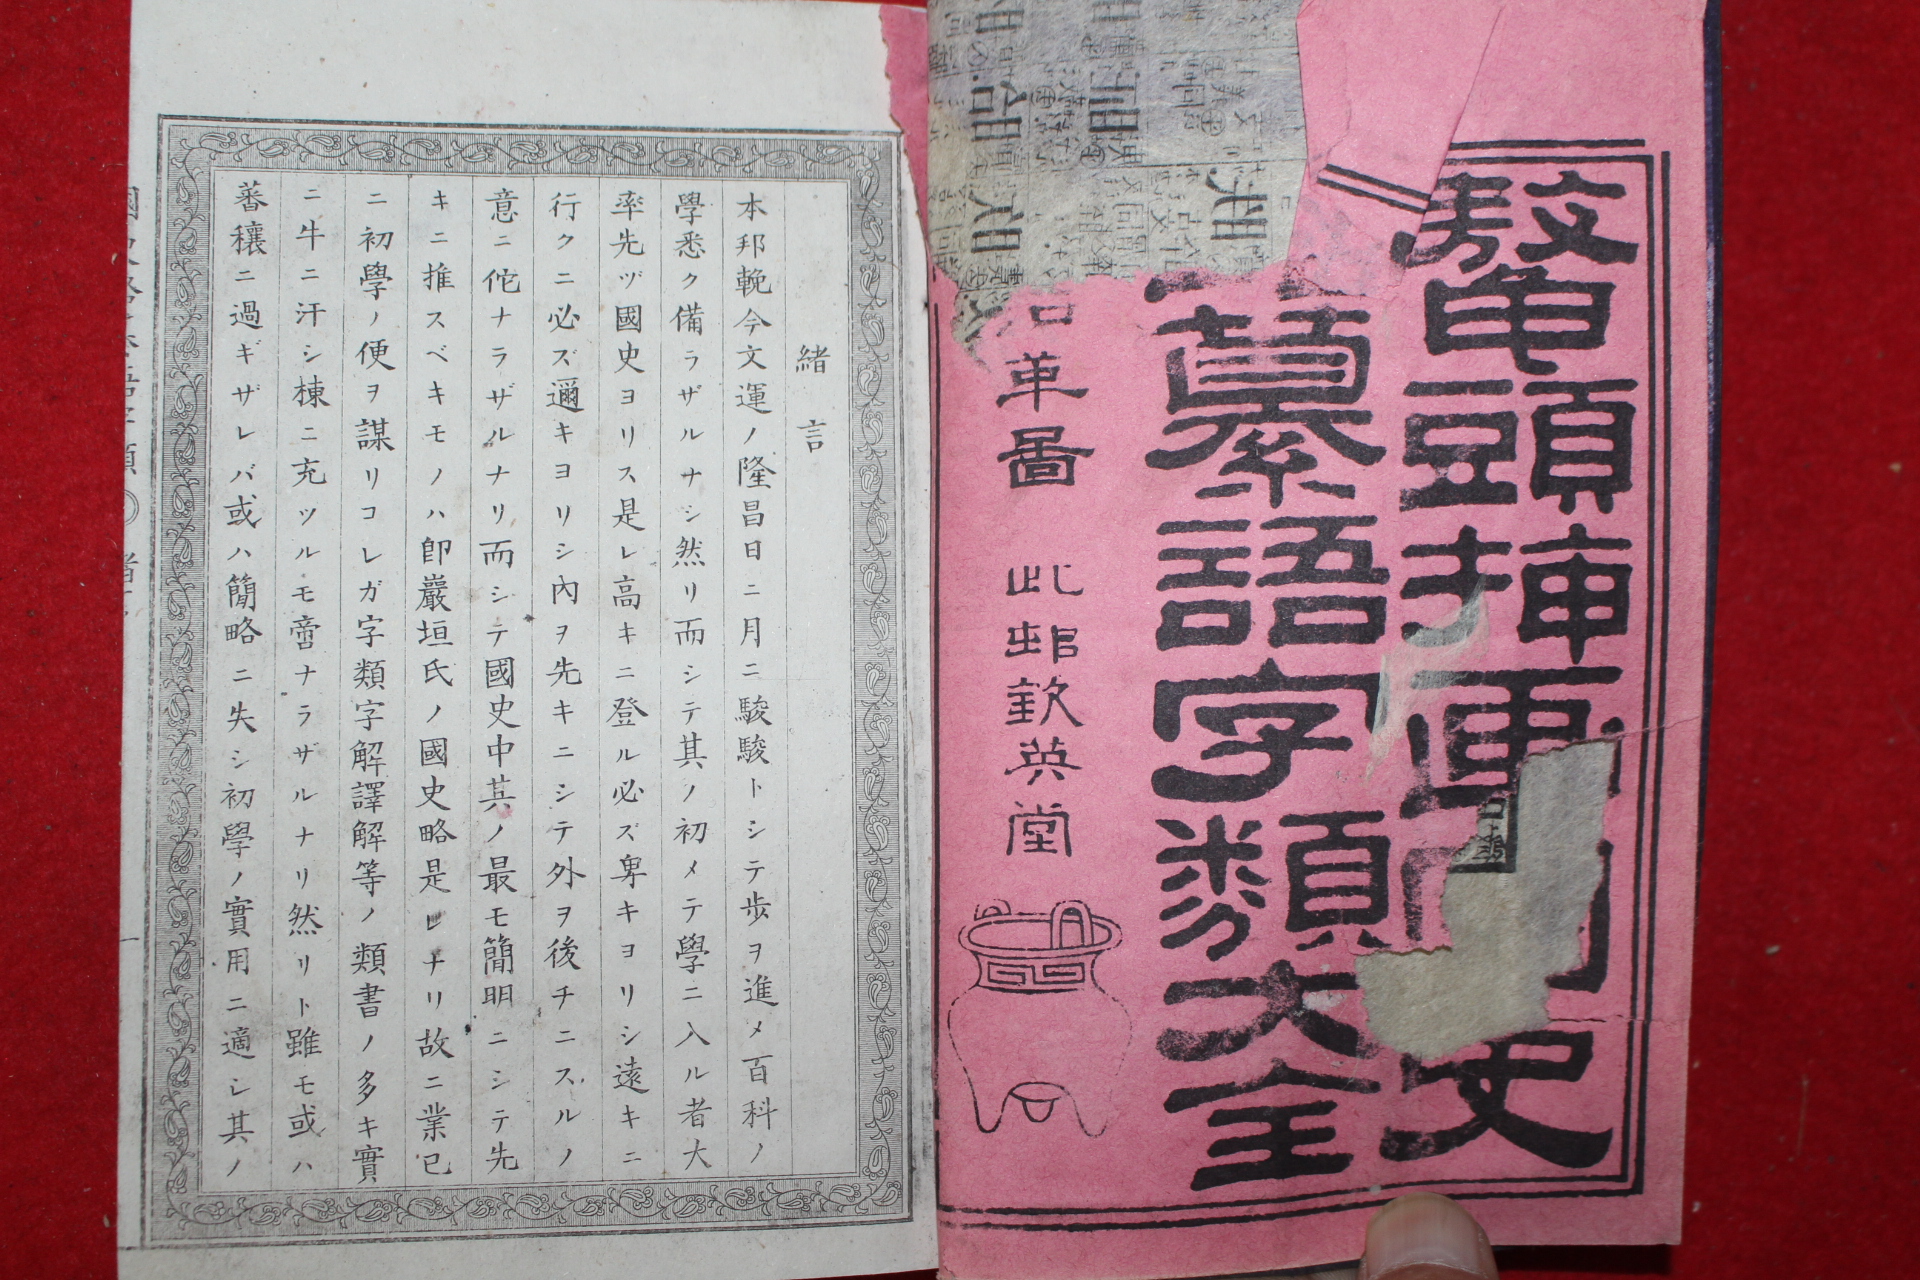 鼇頭挿画國史
纂語字類大全
革圖 此邨欽英堂
緒言
本邦輓今文運ノ隆昌日ニ月ニ駿駿トシテ歩ヲ進メ百科ノ
學悉ク備ラザルナシ然リ而シテ其ノ初メテ學ニ入ル者大
率先ヅ國史ヨリス是レ高キニ登ル必ズ卑キヨリシ遠キニ
行クニ必ズ邇キヨリシ內ヲ先キニシテ外ヲ後チニスルノ
意ニ佗ナラザルナリ而シテ國史中其ノ最モ簡明ニシテ先
キニ推スベキモノハ卽巖垣氏ノ國史略是レナリ故ニ業已
ニ初學ノ便ヲ謀リコレガ字類字解譯解等ノ類書ノ多キ實
ニ牛ニ汗シ棟ニ充ツルモ啻ナラザルナリ然リト雖モ或ハ
蕃穰ニ過ギザレバ或ハ簡略ニ失シ初學ノ實用ニ適シ其ノ